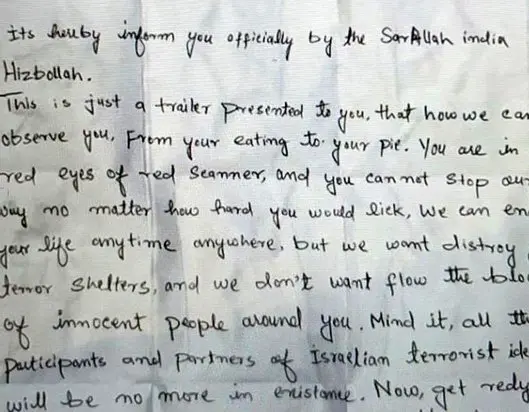 Its heuby inform you officially by the SarAllah india
Hizbollah.
This is just a trailer presented to you, that how we can
observe you, From your eating to your pie. You are in
red eyes of red Scanner, and you can not stop our
way no matter how hard you would lick, We can en
your life anytime anywhere, but we want distroy
terror shelters, and we don't want flow the bloo
of innocent people around you. Mind it, all the
participants and partners of Israelian terrorist ide
will be no more in existance. Now, get redy